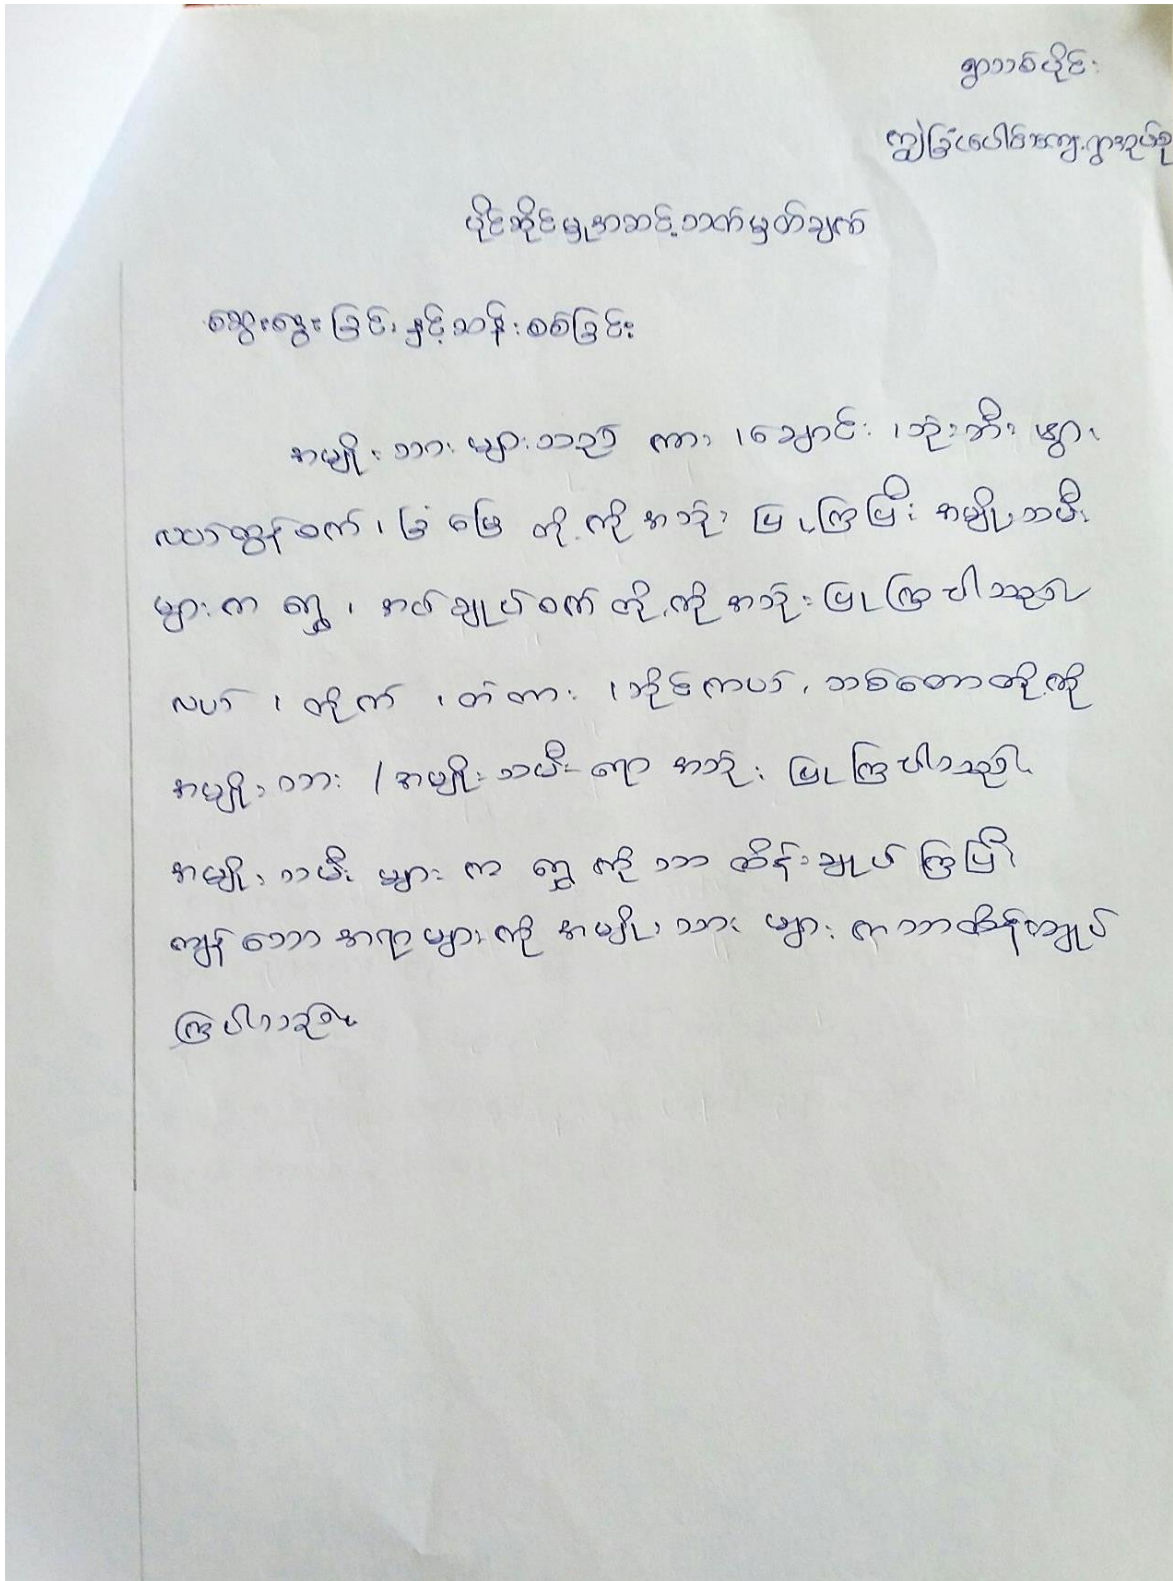 ရွာသစ်ပိုင်း
ကျွဲခြံပေါင်ကျေးရွာအုပ်စု
ပိုင်ဆိုင်မှုအဆင့်သတ်မှတ်ချက်
ဆွေးနွေးခြင်းနှင့်သန်းစစ်ခြင်း
အမျိုးသားများသည် ကား ၊ချောင်း ၊ဘုံးဘီး မွှား
လယ်ထွန်စက် ၊ ခြံ မြေ တို့ကို အသုံး ပြုကြပြီး အမျိုးသမီး
များ က ရွှေ ၊ အပ်ချုပ်စက် တို့ကို အသုံးပြုကြပါသည်။
လယ် ၊ တိုက် ၊ တဲ တား ၊ဆိုင်ကယ် ၊ သစ်တောတို့ကို
အမျိုးသား / အမျိုးသမီး ရော အသုံး ပြုကြပါသည်။
အမျိုးသမီး များ က ရွှေ ကို သာ ထိန်းချုပ် ကြပြီး
ကျန် သော အရာများကို အမျိုးသား များ က သာထိန်းကျုပ်
ကြပါသည်။